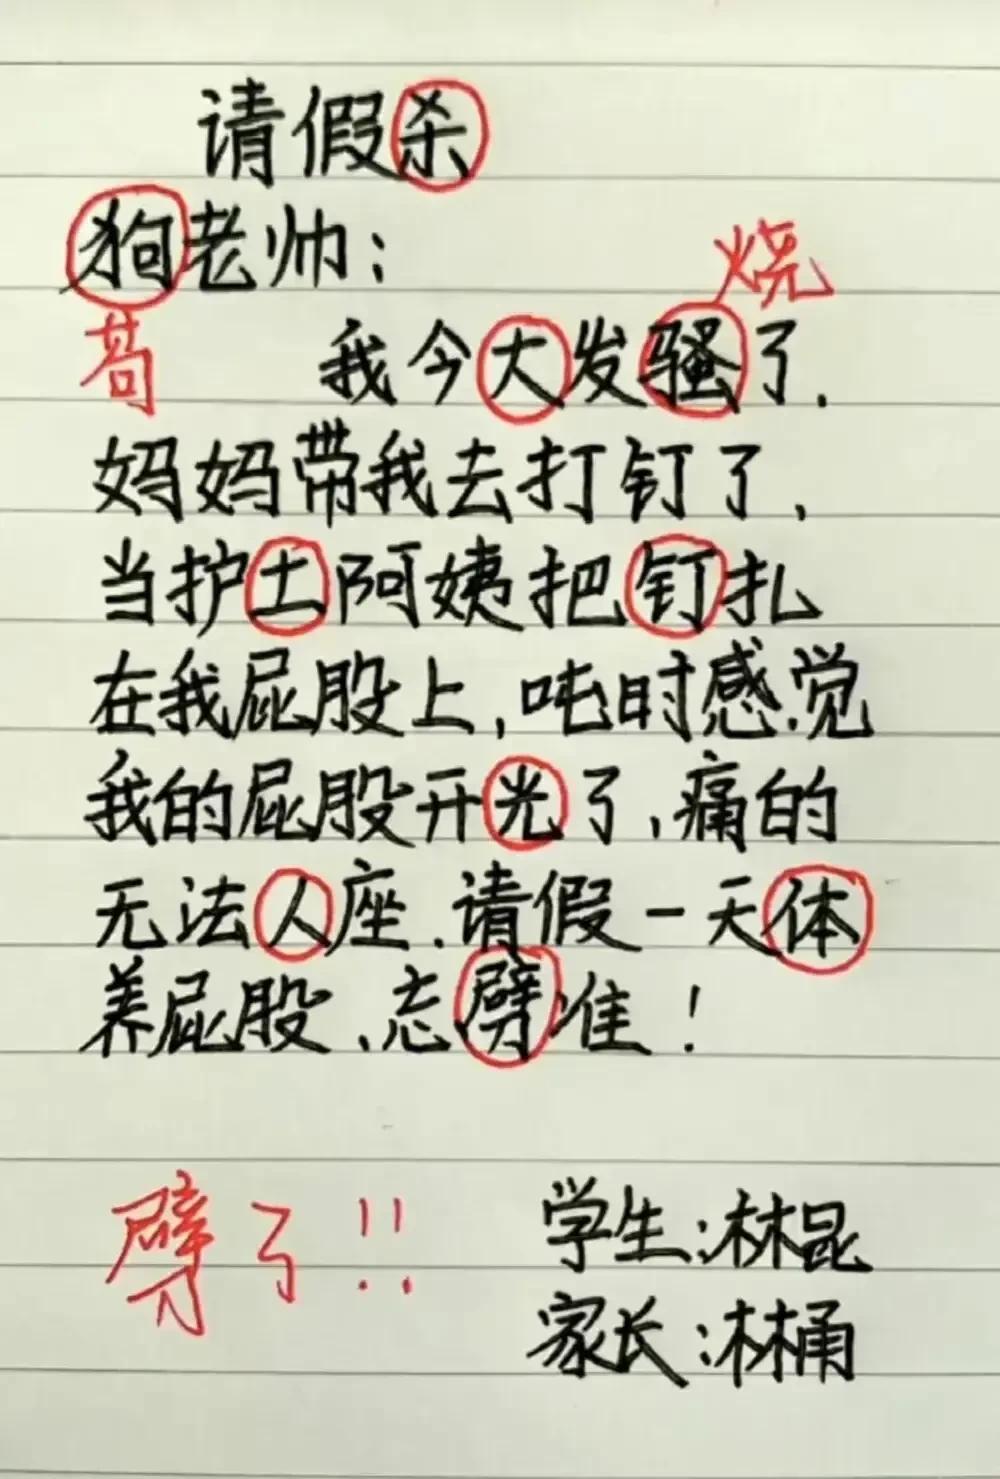 请假杀
狗老帅：
烧
苟
我今大发骚了.
妈妈带我去打钉了.
当护土阿姨把钉扎
在我屁股上,吨时感觉
我的屁股开光了,痛的
无法人座.请假一天体
养屁股.忘劈准！
劈了!!
学生:林昆
家长:林桶